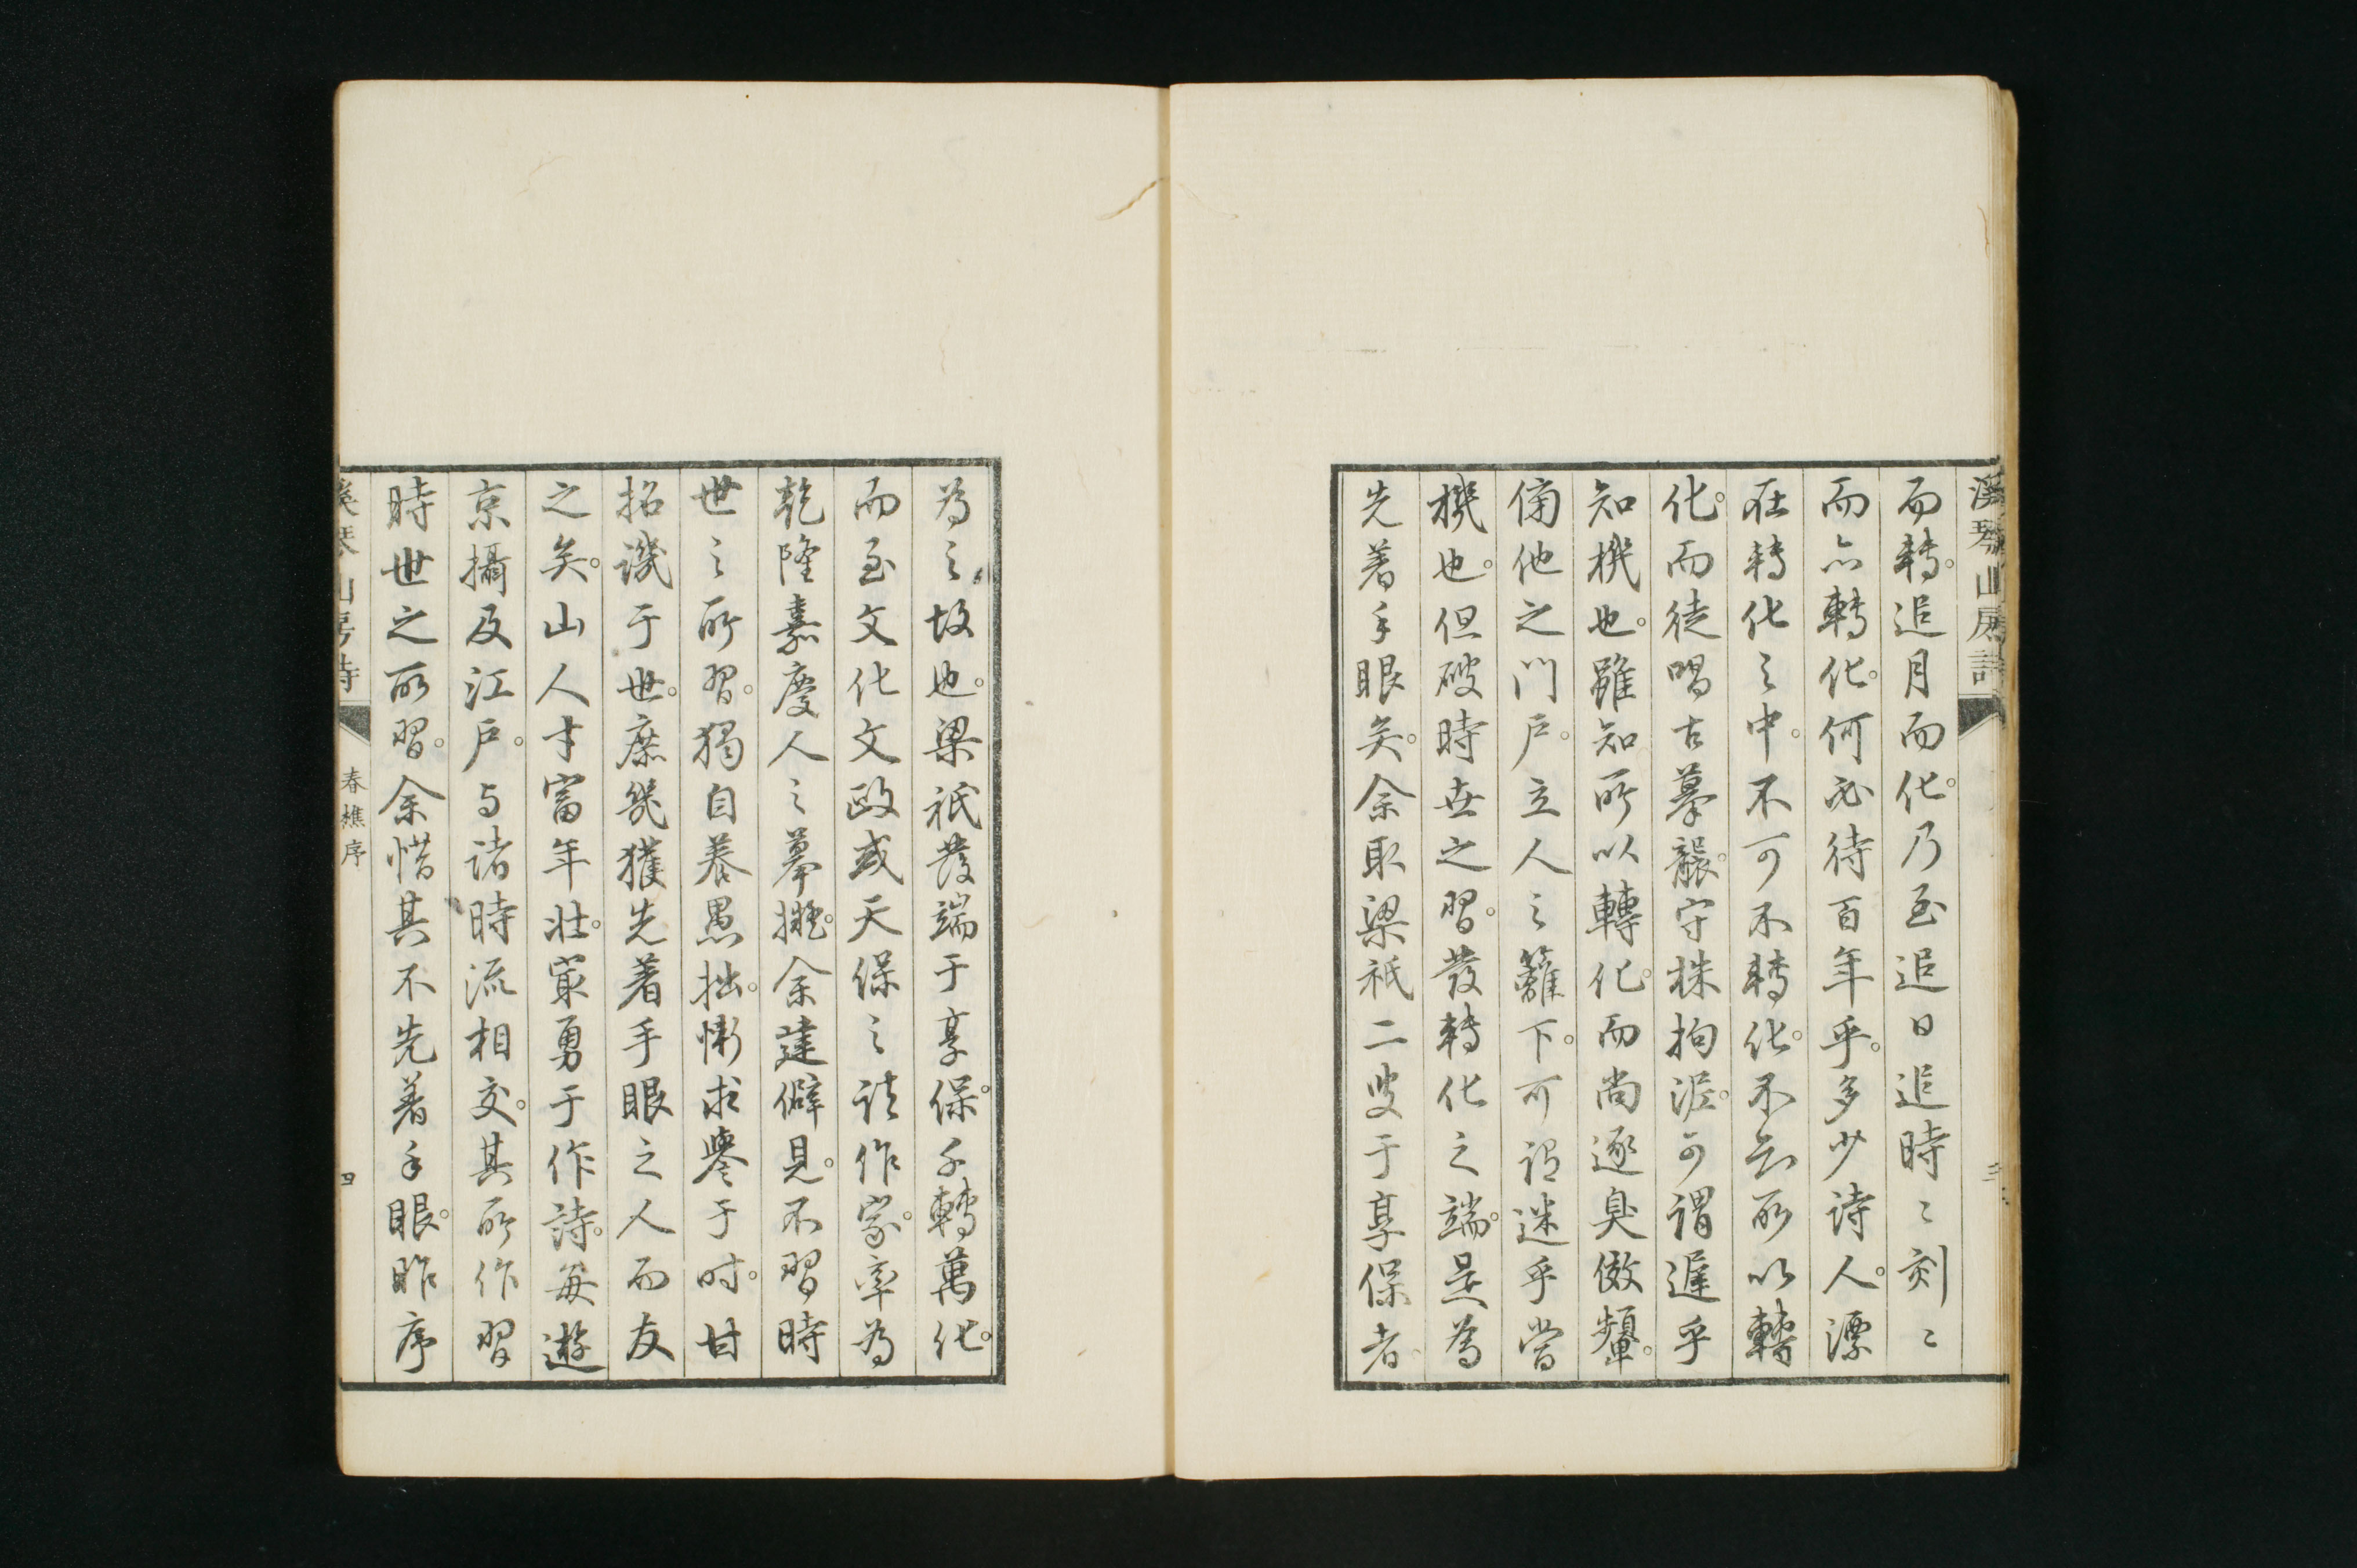 溪琴山房詩
而轉。追月而化。乃至追日追時〻刻〻
而亦轉化。何必待百年乎。多少詩人。漂
在轉化之中。不可不轉化。不知所以轉
化。而徒唱古摹襲。守株拘泥。可謂遲乎
知機也。雖知所以轉化。而尚逐臭傚顰。
傭他之門戶。立人之籬下。可謂迷乎當
機也。但破時世之習。發轉化之端。是為
先着手眼矣。余取梁祇二叟于享保者。
為之故也。梁祇發端于享保。千轉萬化。
而至文化文政或天保之諸作家。率為
乾隆嘉慶人之摹擬。余建僻見。不習時
世之所習。獨自養愚拙。慚求譽于時。甘
招譏于世。庶幾獲先着手眼之人而友
之矣。山人才富年壯。最勇于作詩。每遊
京攝及江戶。与諸時流相交。其所作習
時世之所習。余惜其不先着手眼。昨序
溪琴山房詩
春樵序
四